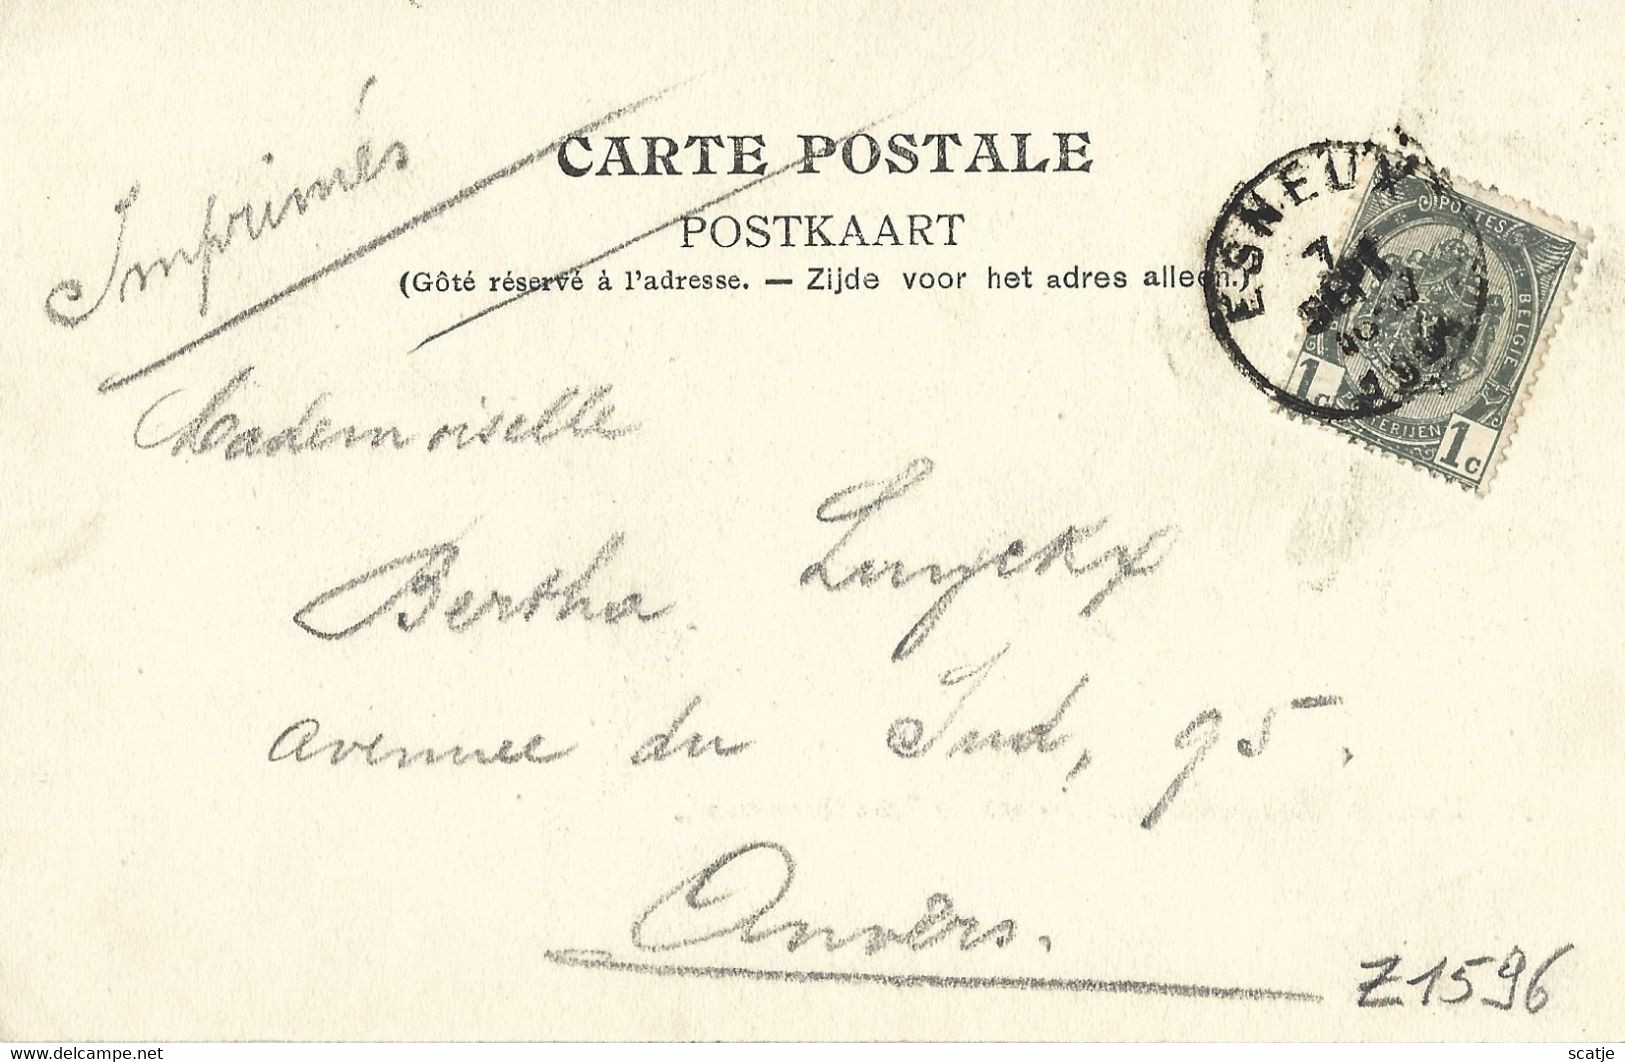 CARTE POSTALE
POSTKAART
(Gôté réservé à l'adresse. — Zijde voor het adres alleen.)
Imprimés
ESNEUX
7
SEPT
POSTES
BELGIE
1c
TERIJEN
1c
Mademoiselle
Bertha Luyckx
avenue du Sud, 95.
Anvers.
Z1596
delcampe.net
scatje